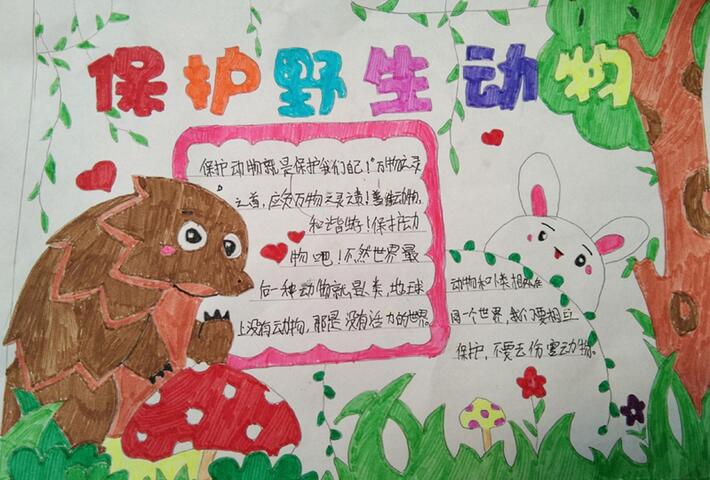 保护野生动物
保护动物就是保护我们自己!"万物之灵
之首,应负万物之灵责!善待动物,
和谐!保护动
物吧!不然世界最
后一种动物就是人类,地球
上没有动物,那是没有活力的世界。
动物和人类相处在
同一个世界,我们要相互
保护,不要去伤害动物。